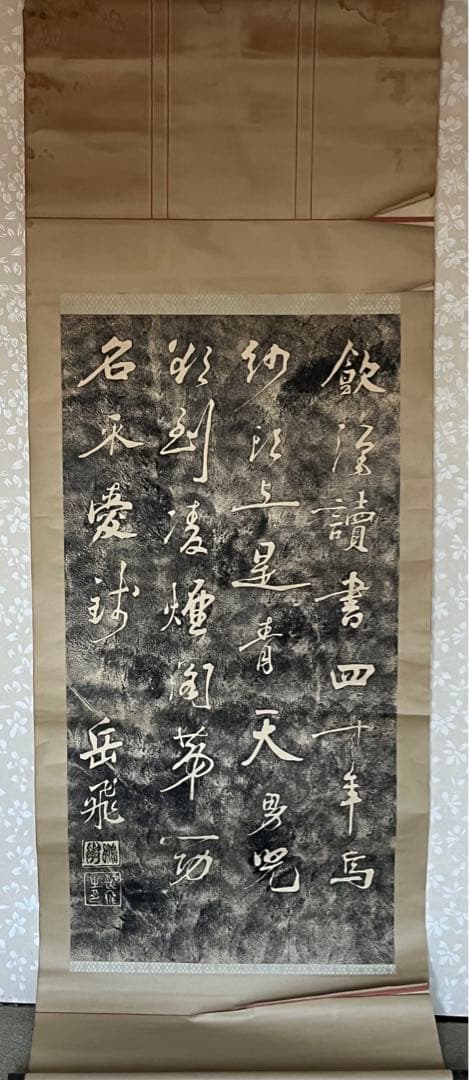 飲酒讀書四十年烏
紗頭上是青天男兒
欲到凌煙閣第一功
名不愛錢 岳飛